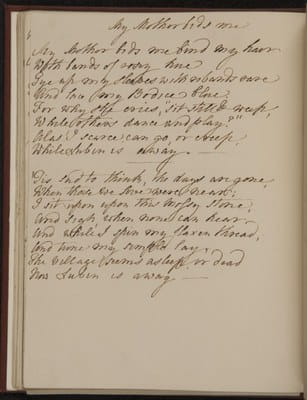 My Mother bids me
My Mother bids me bind my hair
With bands of rosy hue
Tye up my sleeves with ribands rare
And lace my Bodice blue.
For why she cries, "sit still & weep,
While others dance and play?"
Alas I scarce can go, or creep
While Lubin is away.
'Tis sad to think, the days are gone,
When those we love were near;
I sit upon this Mossy Stone,
And sigh when none can hear.
And while I spin my flaxen thread,
And tune my simple lay,
The Village seems asleep, or dead
Now Lubin is away